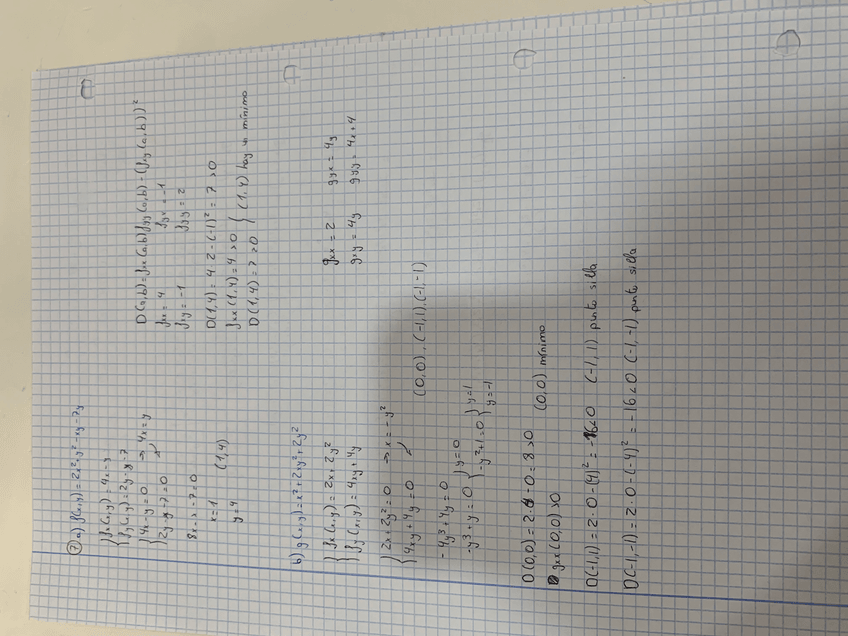 7 a) f(x,y) = 2x² + y² - xy - 7y
fx(x,y) = 4x - y
fy(x,y) = 2y - x - 7
4x - y = 0 → 4x = y
2y - x - 7 = 0
8x - x - 7 = 0
x = 1
y = 4
(1,4)
D(a,b) = fxx(a,b) fyy(a,b) - (fxy(a,b))²
fxx = 4 fyx = -1
fxy = -1 fyy = 2
D(1,4) = 4·2 - (-1)² = 7 > 0
fxx(1,4) = 4 > 0
D(1,4) = 7 > 0
(1,4) hay un mínimo
b) g(x,y) = x² + 2xy² + 2y²
fx(x,y) = 2x + 2y²
fy(x,y) = 4xy + 4y
gxx = 2 gyx = 4y
gxy = 4y gyy = 4x + 4
2x + 2y² = 0 → x = -y²
4xy + 4y = 0
(0,0), (-1,1), (-1,-1)
-4y³ + 4y = 0
-y³ + y = 0
y = 0
-y² + 1 = 0
y = 1
y = -1
D(0,0) = 2·4 - 0 = 8 > 0
gxx(0,0) > 0
(0,0) mínimo
D(-1,1) = 2·0 - (4)² = -16 < 0 (-1,1) punto silla
D(-1,-1) = 2·0 - (-4)² = -16 < 0 (-1,-1) punto silla